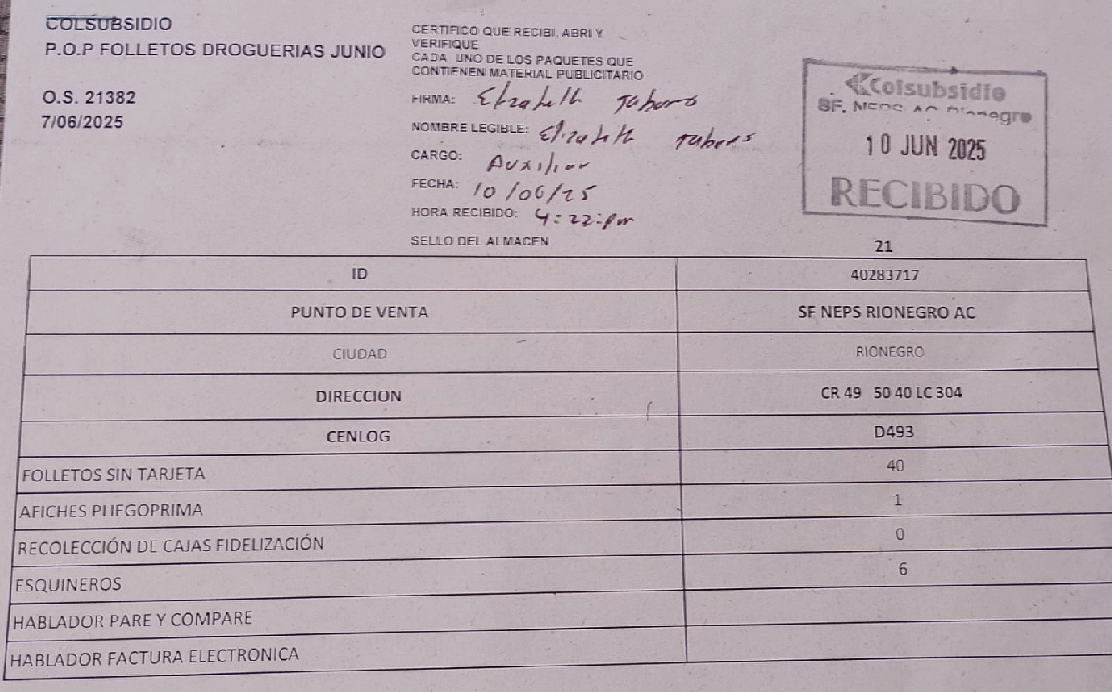 COLSUBSIDIO
P.O.P FOLLETOS DROGUERIAS JUNIO
O.S. 21382
7/06/2025
CERTIFICO QUE RECIBI, ABRI Y
VERIFIQUE
CADA UNO DE LOS PAQUETES QUE
CONTIENEN MATERIAL PUBLICITARIO
FIRMA: Elizabeth
NOMBRE LEGIBLE: Elizabeth
CARGO: Auxiliar
FECHA: 10/06/25
HORA RECIBIDO: 4:22:pm
SELLO DEL ALMACEN
Colsubsidio
SF. NEPS AC Rionegro
10 JUN 2025
RECIBIDO
21
ID 40283717
PUNTO DE VENTA SF NEPS RIONEGRO AC
CIUDAD RIONEGRO
DIRECCION CR 49 50 40 LC 304
CENLOG D493
FOLLETOS SIN TARJETA 40
AFICHES PLIEGOPRIMA 1
RECOLECCIÓN DE CAJAS FIDELIZACIÓN 0
ESQUINEROS 6
HABLADOR PARE Y COMPARE
HABLADOR FACTURA ELECTRONICA